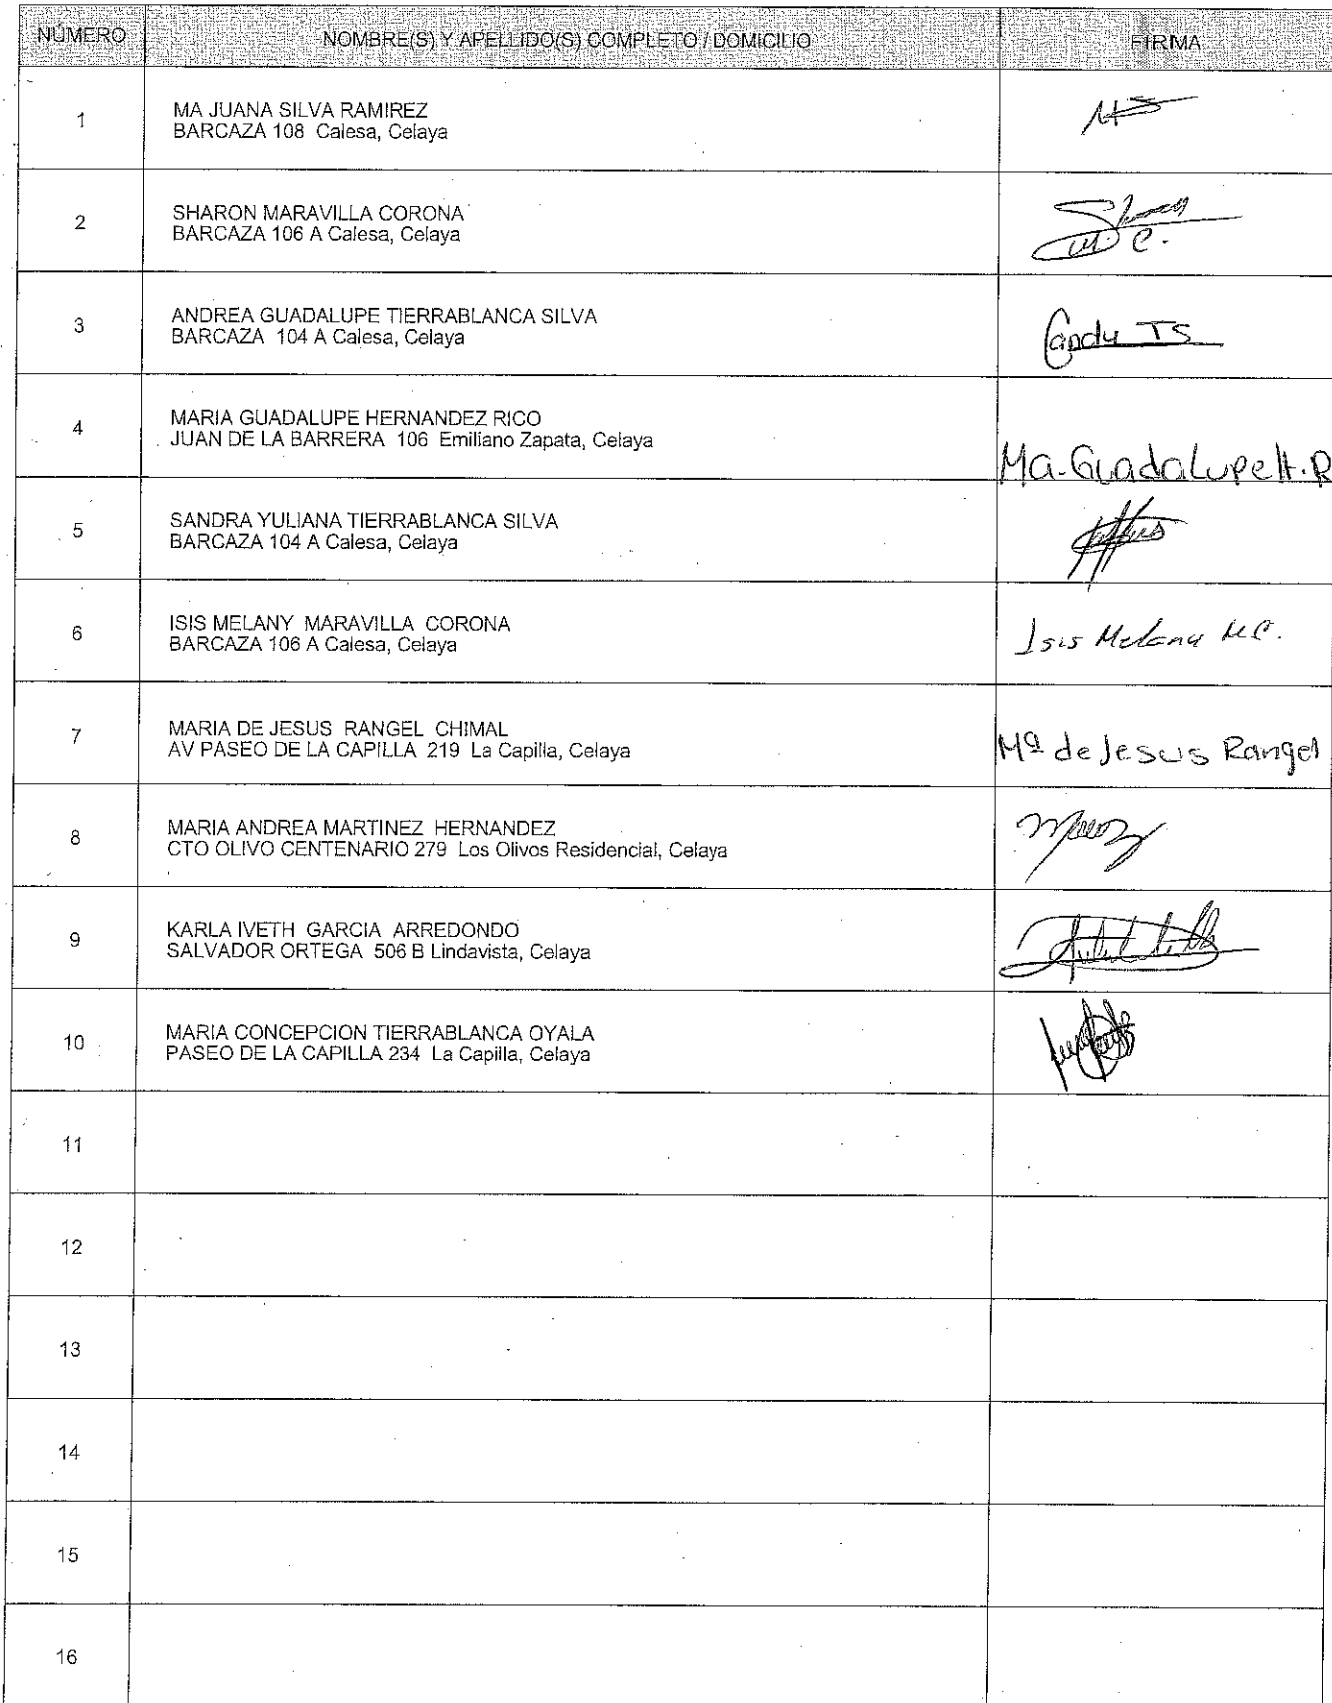 NÚMERO NOMBRE(S) Y APELLIDO(S) COMPLETO / DOMICILIO FIRMA
1 MA JUANA SILVA RAMIREZ
BARCAZA 108 Calesa, Celaya
2 SHARON MARAVILLA CORONA
BARCAZA 106 A Calesa, Celaya
M. C.
3 ANDREA GUADALUPE TIERRABLANCA SILVA
BARCAZA 104 A Calesa, Celaya
TS
4 MARIA GUADALUPE HERNANDEZ RICO
JUAN DE LA BARRERA 106 Emiliano Zapata, Celaya
Ma. Guadalupe H. R
5 SANDRA YULIANA TIERRABLANCA SILVA
BARCAZA 104 A Calesa, Celaya
6 ISIS MELANY MARAVILLA CORONA
BARCAZA 106 A Calesa, Celaya
Isis Melany M.C.
7 MARIA DE JESUS RANGEL CHIMAL
AV PASEO DE LA CAPILLA 219 La Capilla, Celaya
Mª de Jesus Rangel
8 MARIA ANDREA MARTINEZ HERNANDEZ
CTO OLIVO CENTENARIO 279 Los Olivos Residencial, Celaya
9 KARLA IVETH GARCIA ARREDONDO
SALVADOR ORTEGA 506 B Lindavista, Celaya
10 MARIA CONCEPCION TIERRABLANCA OYALA
PASEO DE LA CAPILLA 234 La Capilla, Celaya
11
12
13
14
15
16